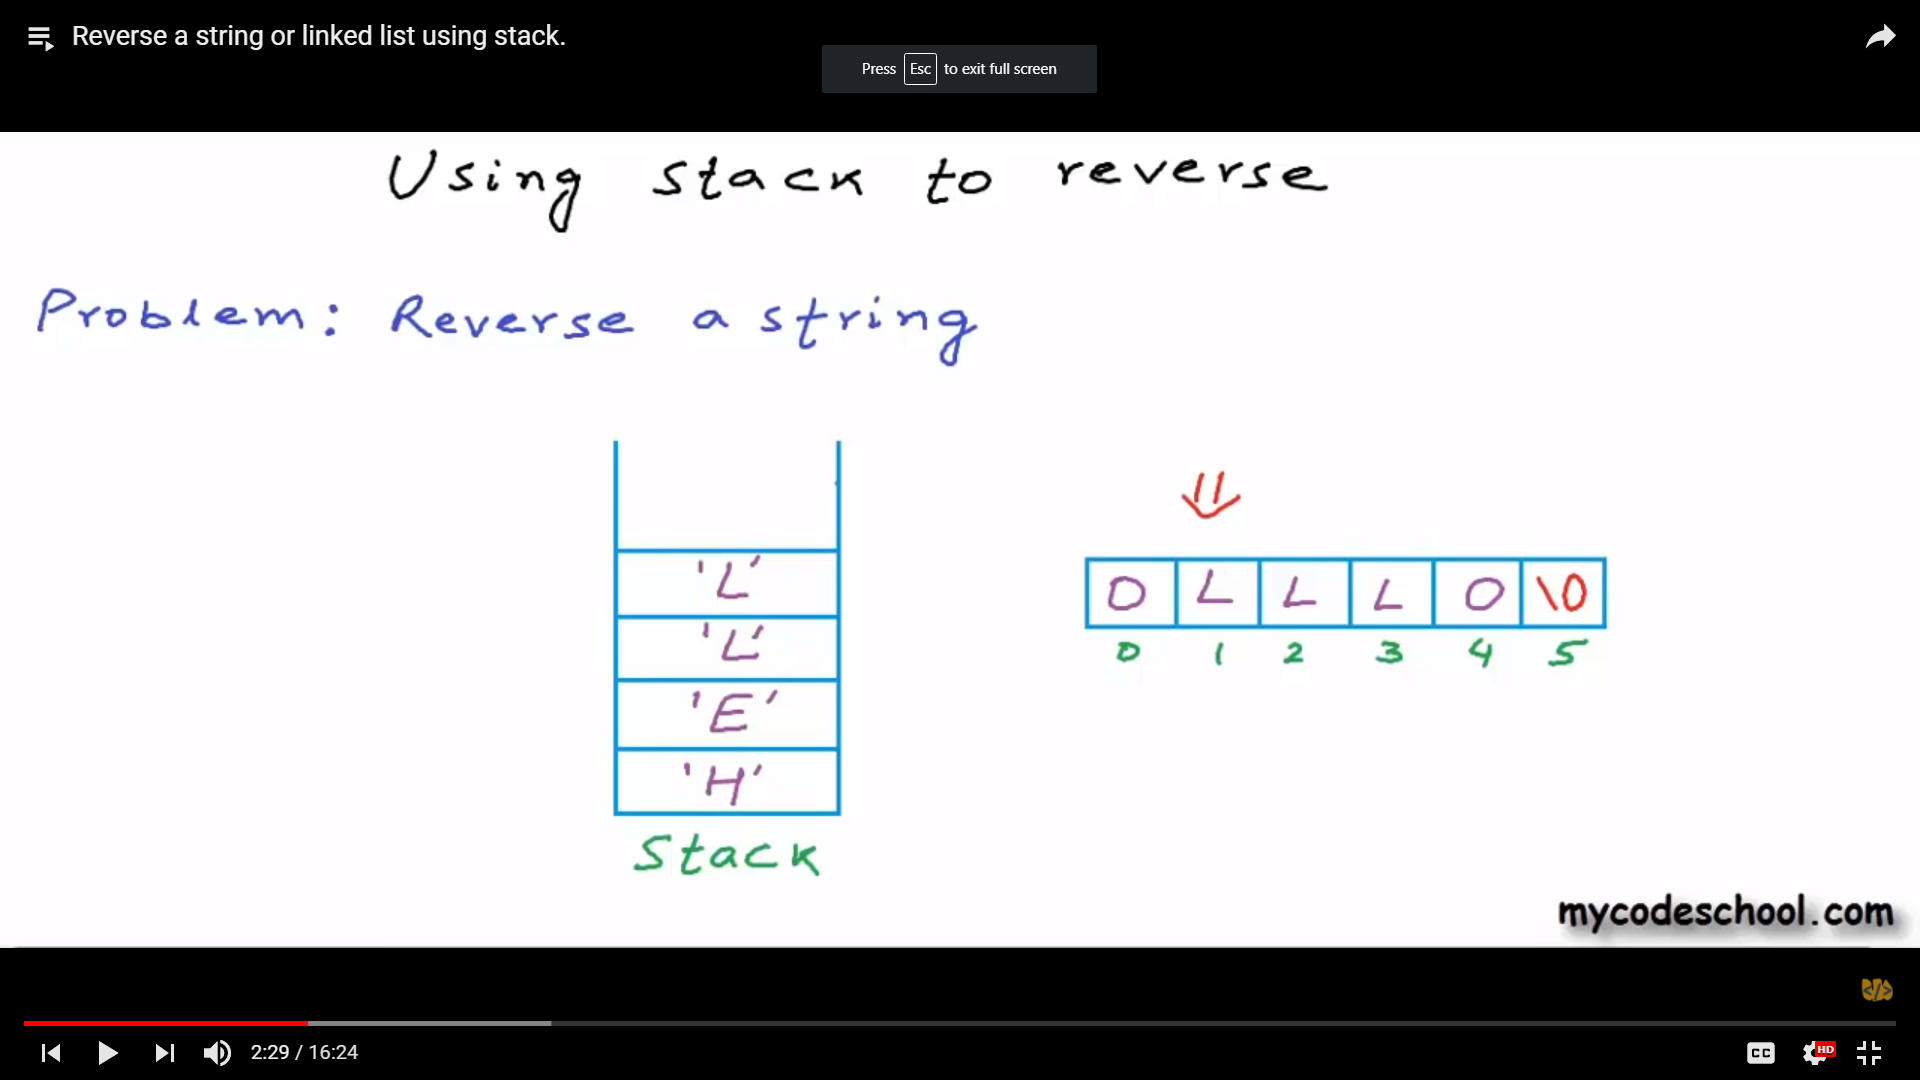 Reverse a string or linked list using stack.
Press Esc to exit full screen
Using stack to reverse
Problem: Reverse a string
'L'
'L'
'E'
'H'
Stack
O L L L O \0
0 1 2 3 4 5
mycodeschool.com
</>
2:29 / 16:24
CC HD